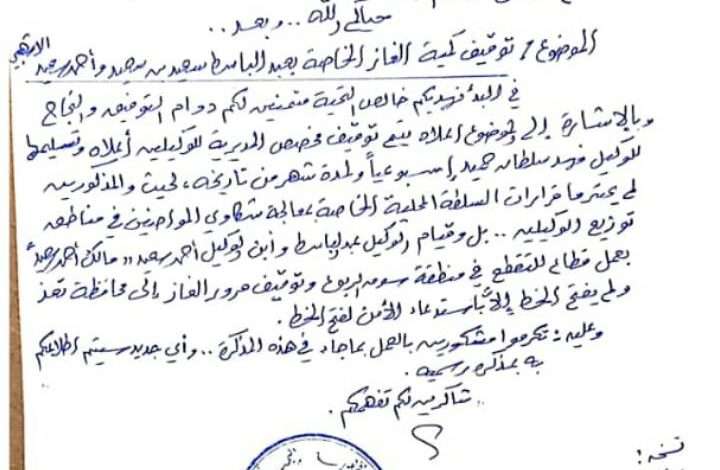 حياكم الله .. وبعد ..
الموضوع / توقيف كمية الغاز الخاصة بعبد الباسط سعيد بن سعيد وأحمد سعيد
في البدء نهديكم خالص التحية متمنين لكم دوام التوفيق والنجاح
وبالإشارة إلى الموضوع أعلاه يتم توقيف مخصص المديرية للوكيلين أعلاه وتسليمها
للوكيل فهد سلطان حميد إسبوعياً ولمدة شهر من تاريخه، لحيث والمذكورين
لم يحترما قرارات السلطة المحلية الخاصة بمعالجة شكاوي المواطنين في مناطق
توزيع الوكيلين .. بل وقيام الوكيل عبدالباسط وابن الوكيل أحمد سعيد ,, مالك أحمد سعيد ,,
بعمل قطاع للتقطع في منطقة سوم الربوع وتوقيف مرور الغاز إلى محافظة تعز
ولم يفتح الخط إلا بإستدعاء الأمن لفتح الخط.
وعليه : تكرموا مشكورين بالعمل بما جاء في هذه المذكرة .. وأي جديد سيتم اطلاعكم
به بمذكرة رسمية.
شاكرين لكم تفهمكم.
نسخة :